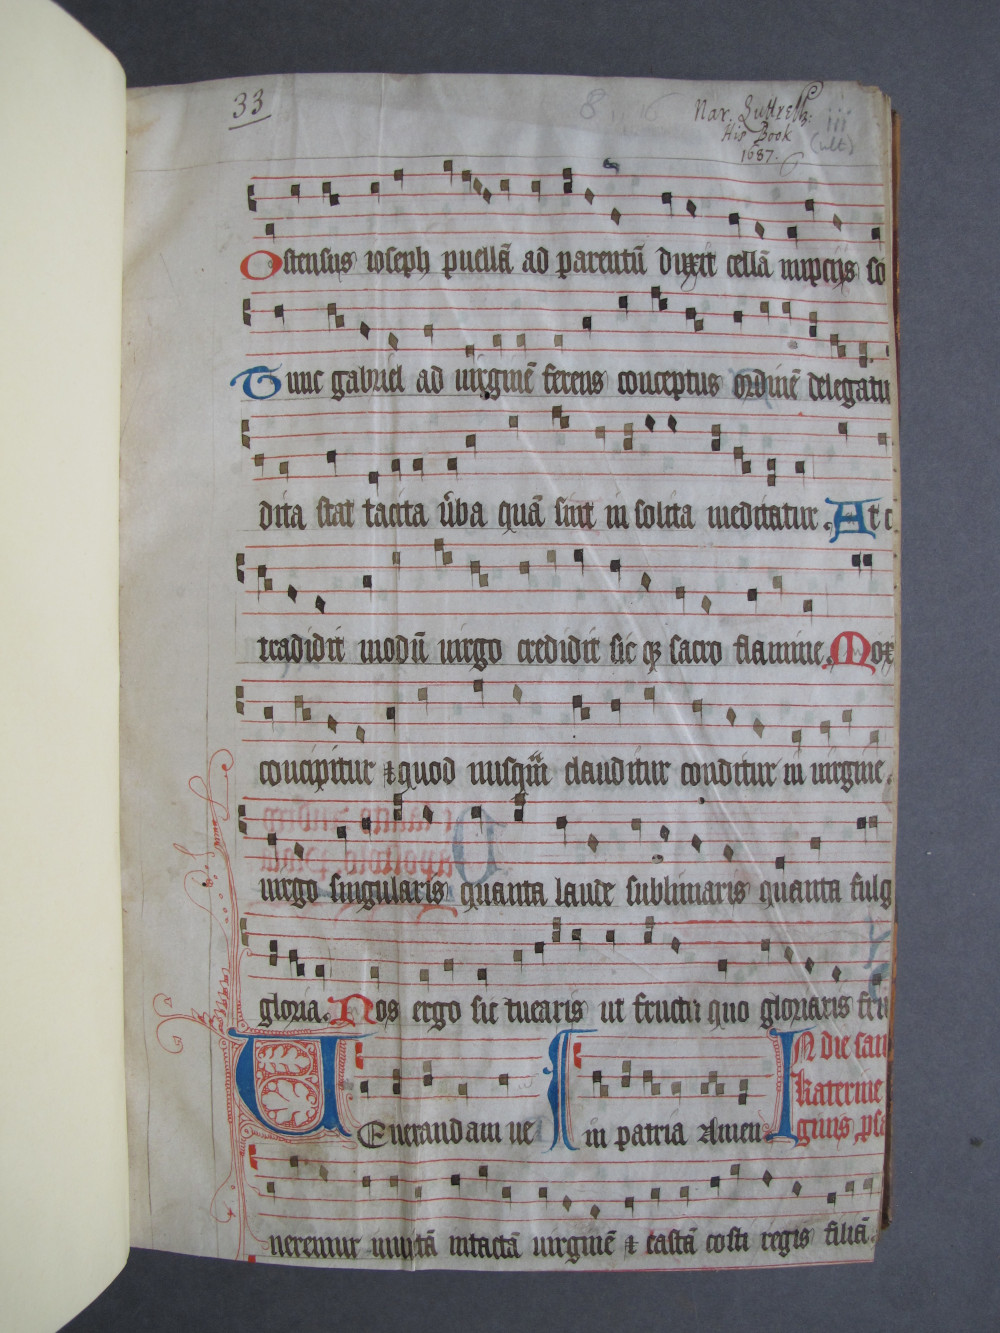 33
8 16
Nar. Luttrell:
His Book
1687.
iii
(ult)
6
Ostensus ioseph puellã ad parentũ duxit cellã nupcijs so
Tunc gabriel ad uirginẽ ferens conceptus ordinẽ delegatu
dita stat tacita u̾ba quã sint in solita meditatur. At c
tradidit modũ uirgo credidit sic qꝫ sacro flamine. Mox
concipitur ⁊ quod nusqꝫ clauditur conditur in uirgine.
uirgo singularis quanta laude sublimaris quanta fulg
gloria. Nos ergo sic tuearis ut fructu quo gloriaris fru
Uenerandam ue in patria Amen. In die san
katerine
ginis, ps
neremur inuptã intactã uirginẽ ⁊ castã costi regis filiã.